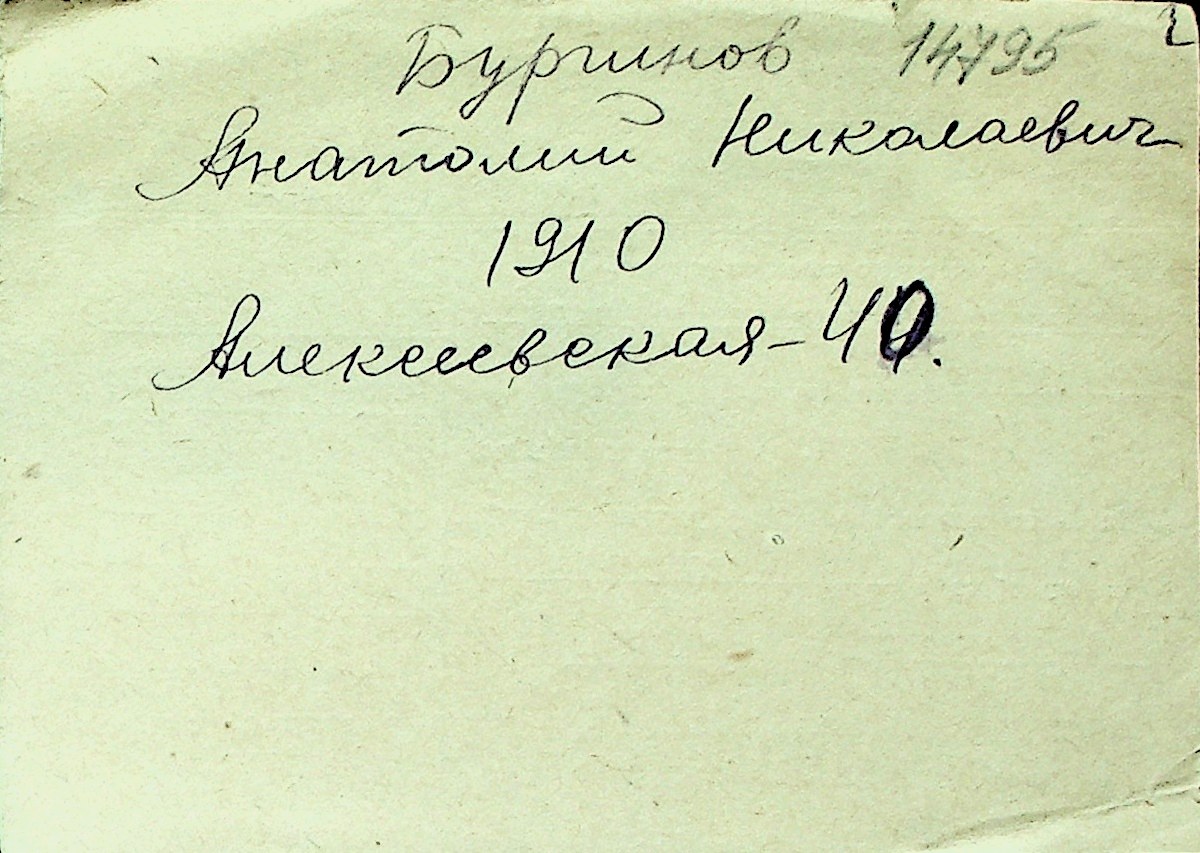 Бургинов 14795 2
Анатолий Николаевич
1910
Алексеевская-40.